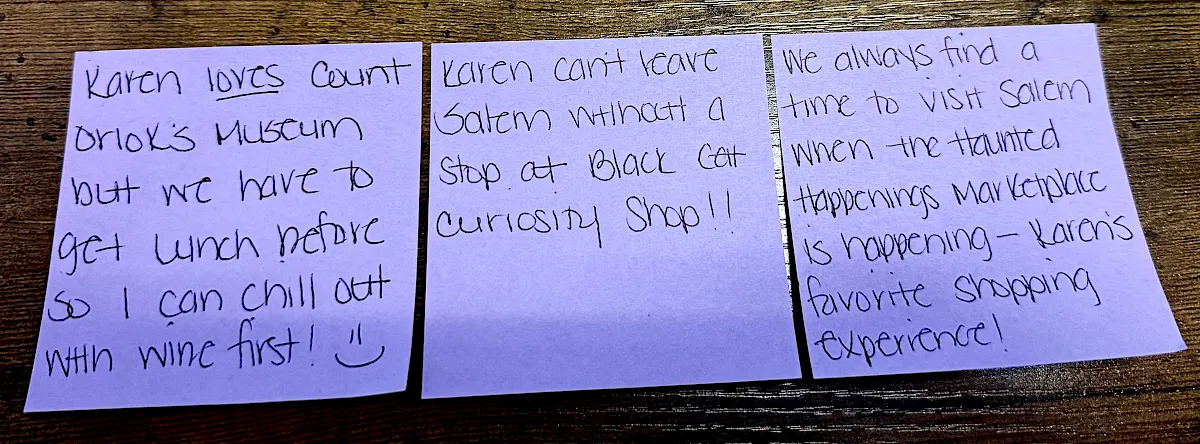 Karen loves Count
Orlok's Museum
but we have to
get lunch before
so I can chill out
with wine first! :)
Karen can't leave
Salem without a
stop at Black Cat
Curiosity Shop!!
We always find a
time to visit Salem
when the Haunted
Happenings Marketplace
is happening - Karen's
favorite shopping
experience!